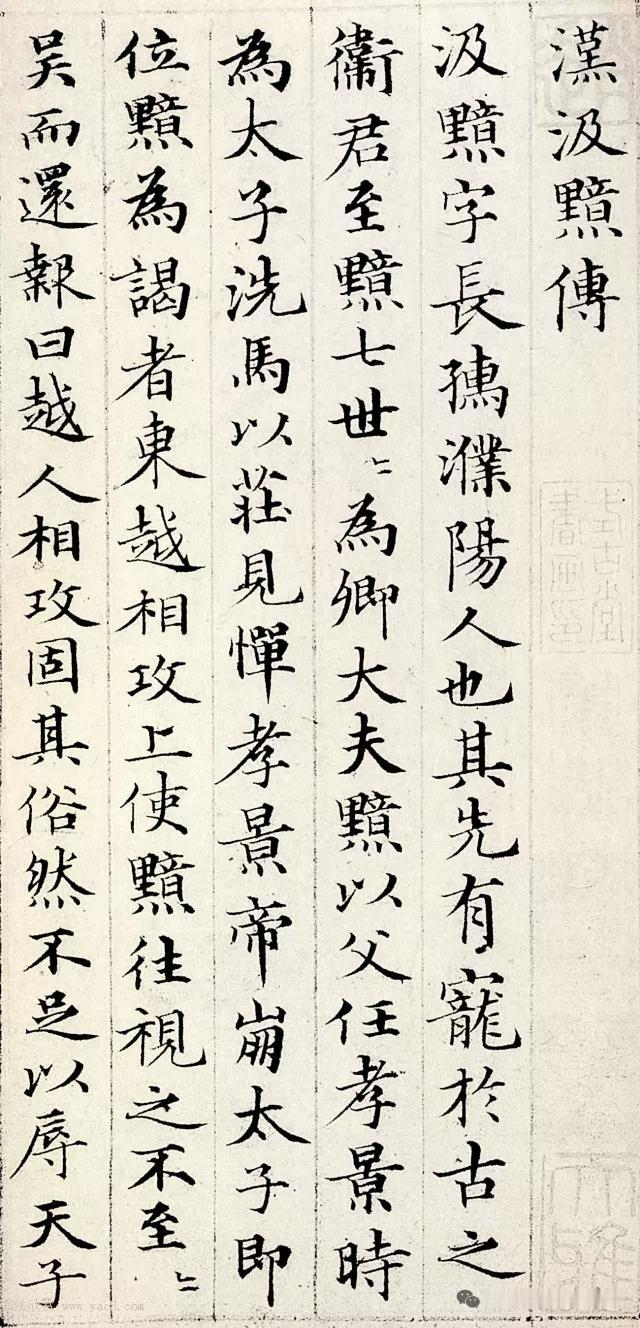 漢汲黯傳
汲黯字長孺濮陽人也其先有寵於古之
衛君至黯七世〻為卿大夫黯以父任孝景時
為太子洗馬以莊見憚孝景帝崩太子即
位黯為謁者東越相攻上使黯往視之不至〻
吴而還報曰越人相攻固其俗然不足以辱天子